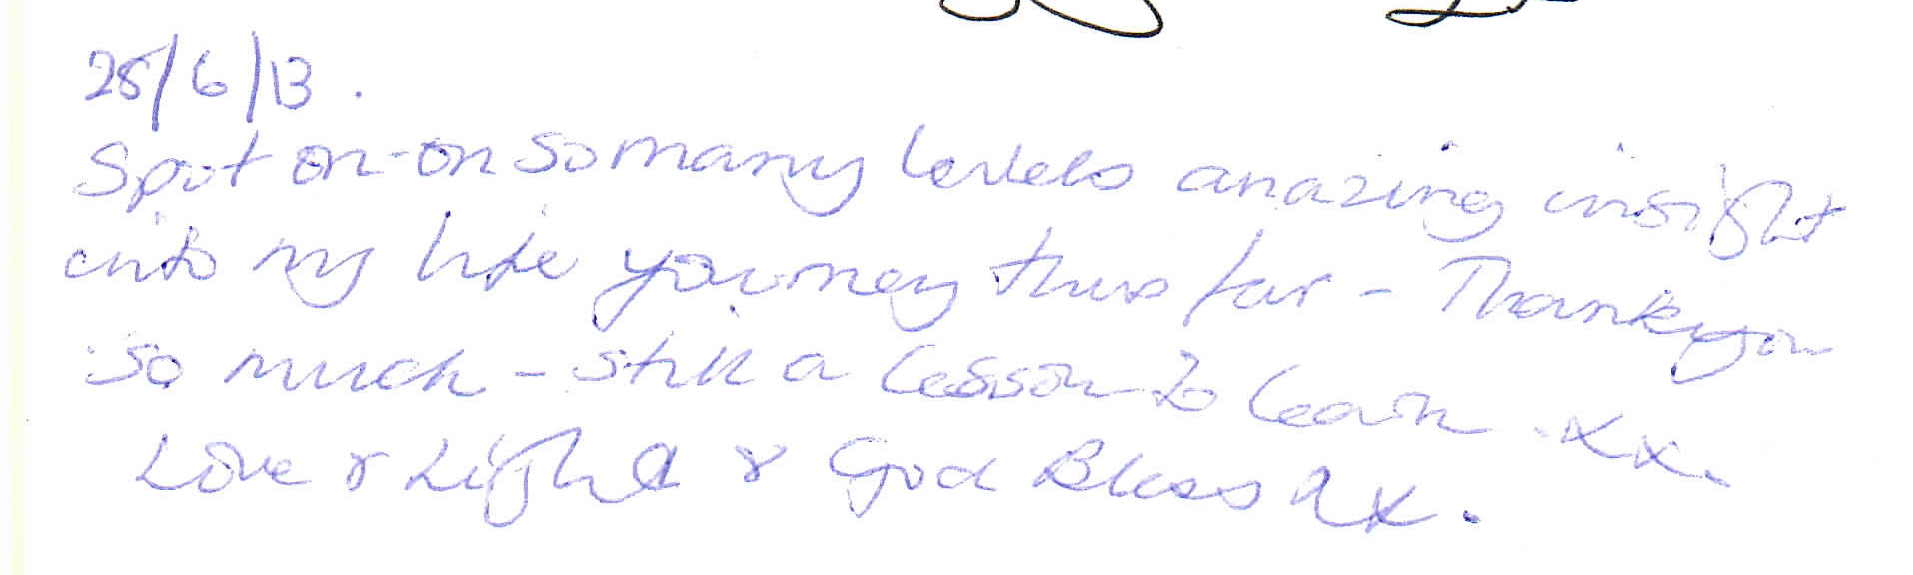 25/6/13.
Spot on-on so many levels amazing insight
into my life journey thus far - Thankyou
so much - still a lesson to learn. xx.
Love & Light & God Bless x.